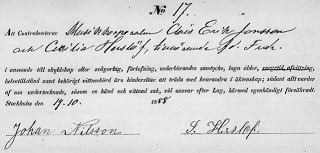 No 17.
Att Contrahenterne Musikkorporalen Claes Erik Jonsson
och Cecilia Herslöf, tjenarinde
i anseende till skyldskap eller svågerlag, förlofning, vederbörandes samtycke, laga ålder,
befvittnad samt behörigt vittnesbörd äro hinderslöse att träda med hvarandra i äktenskap; sådant allt varder
af oss undertecknade, såsom en känd och vittnad sak, vid ansvar efter Lag, härmed egenhändigt försäkradt.
Stockholm den 19.10. 1888
Johan Nilsson S. Herslöf